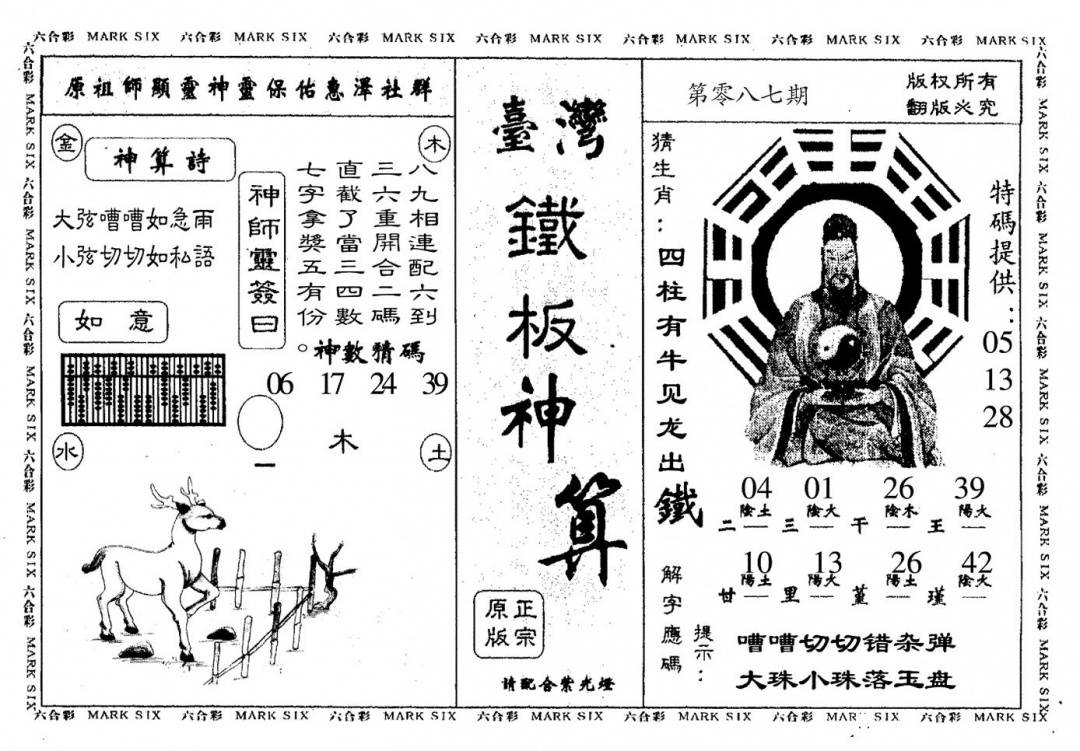 六合彩 MARK SIX 六合彩 MARK SIX 六合彩 MARK SIX 六合彩 MARK SIX 六合彩 MARK SIX 六合彩 MARK SIX 六合彩 MARK SIX
六合彩 MARK SIX 六合彩 MARK SIX 六合彩 MARK SIX 六合彩 MARK SIX 六合彩 MARK SIX
原祖師顯靈神靈保佑惠澤社群
金
木
神算詩
大弦嘈嘈如急雨
小弦切切如私語
如意
神師靈簽曰
八九相連配六到
三六重開合二碼
直截了當三四數
七字拿獎五有份。
神數猜碼
06 17 24 39
木
一
水
土
臺灣
鐵板神算
正宗
原版
請配合紫光燈
第零八七期
版权所有
翻版必究
猜生肖：四柱有牛见龙出鐵
特碼提供：
05
13
28
04 01 26 39
陰土 陰火 陰木 陽火
二 三 干 王
10 13 26 42
陽土 陽火 陽土 陰火
廿 里 堇 瑾
解字應碼
提示：
嘈嘈切切错杂弹
大珠小珠落玉盘
六合彩 MARK SIX 六合彩 MARK SIX 六合彩 MARK SIX 六合彩 MARK SIX 六合彩 MARK SIX
六合彩 MARK SIX 六合彩 MARK SIX 六合彩 MARK SIX 六合彩 MARK SIX 六合彩 MARK SIX 六合彩 MARK SIX 六合彩 MARK SIX